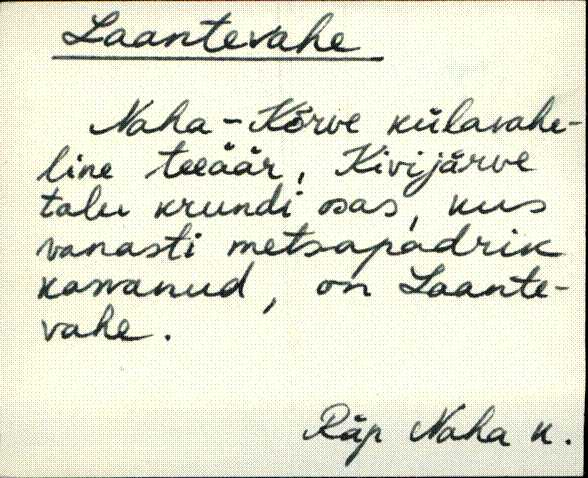 Laantevahe
Naha-Kõrve külavahe-
line teeäär, Kivijärve
talu krundi osas, kus
vanasti metsapadrik
kasvanud, on Laante-
vahe.
Räp Naha k.